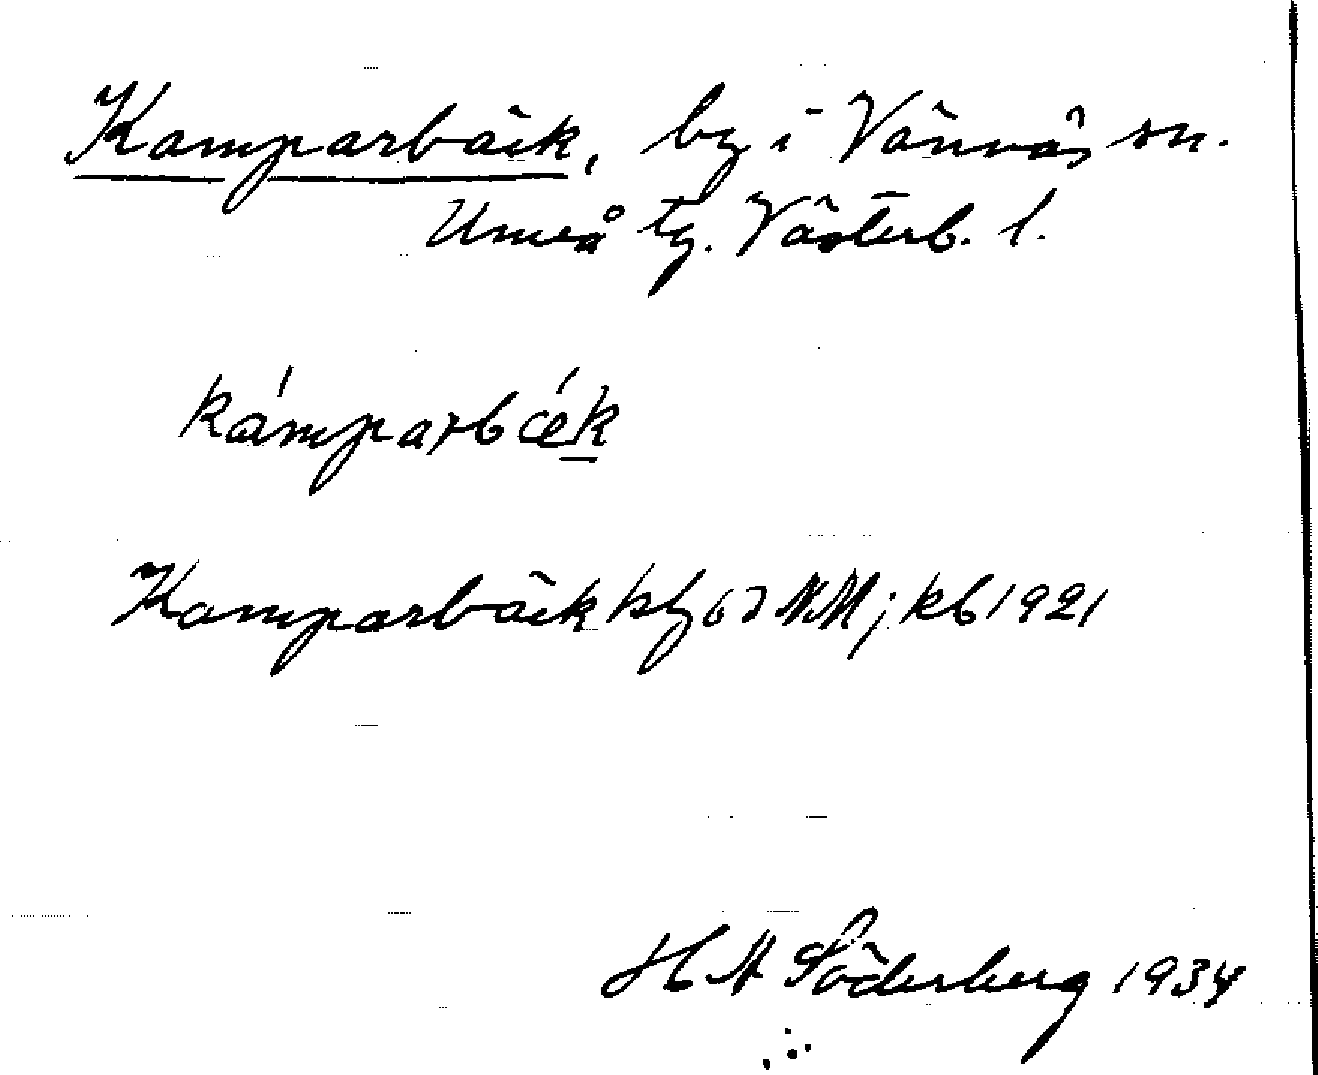 Kamparbäck, by i Vännäs sn.
Umeå tg. Västerb. l.
kámparbǽk
Kamparbäck kb 1921
H A Söderberg 1934